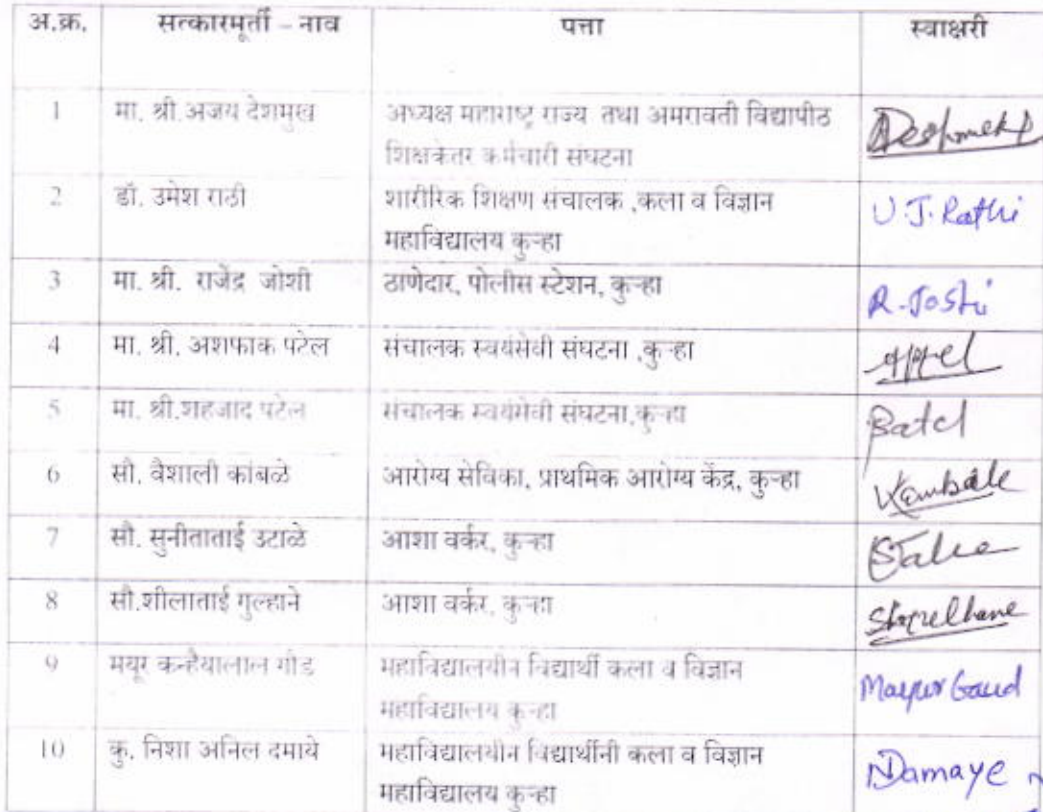 अ.क्र. सत्कारमूर्ती – नाव पत्ता स्वाक्षरी
1 मा. श्री.अजय देशमुख अध्यक्ष महाराष्ट्र राज्य तथा अमरावती विद्यापीठ
शिक्षकेतर कर्मचारी संघटना
2 डॉ. उमेश राठी शारीरिक शिक्षण संचालक ,कला व विज्ञान U.J. Rathi
महाविद्यालय कुऱ्हा
3 मा. श्री. राजेंद्र जोशी ठाणेदार, पोलीस स्टेशन, कुऱ्हा R. Joshi
4 मा. श्री. अशफाक पटेल संचालक स्वयंसेवी संघटना ,कुऱ्हा
5 मा. श्री.शहजाद पटेल संचालक स्वयंसेवी संघटना,कुऱ्हा Patel
6 सौ. वैशाली कांबळे आरोग्य सेविका, प्राथमिक आरोग्य केंद्र, कुऱ्हा VKambale
7 सौ. सुनीताताई उटाळे आशा वर्कर, कुऱ्हा
8 सौ.शीलाताई गुल्हाने आशा वर्कर, कुऱ्हा
9 मयूर कन्हैयालाल गौड महाविद्यालयीन विद्यार्थी कला व विज्ञान Mayur Gaud
महाविद्यालय कुऱ्हा
10 कु. निशा अनिल दमाये महाविद्यालयीन विद्यार्थीनी कला व विज्ञान NDamaye
महाविद्यालय कुऱ्हा